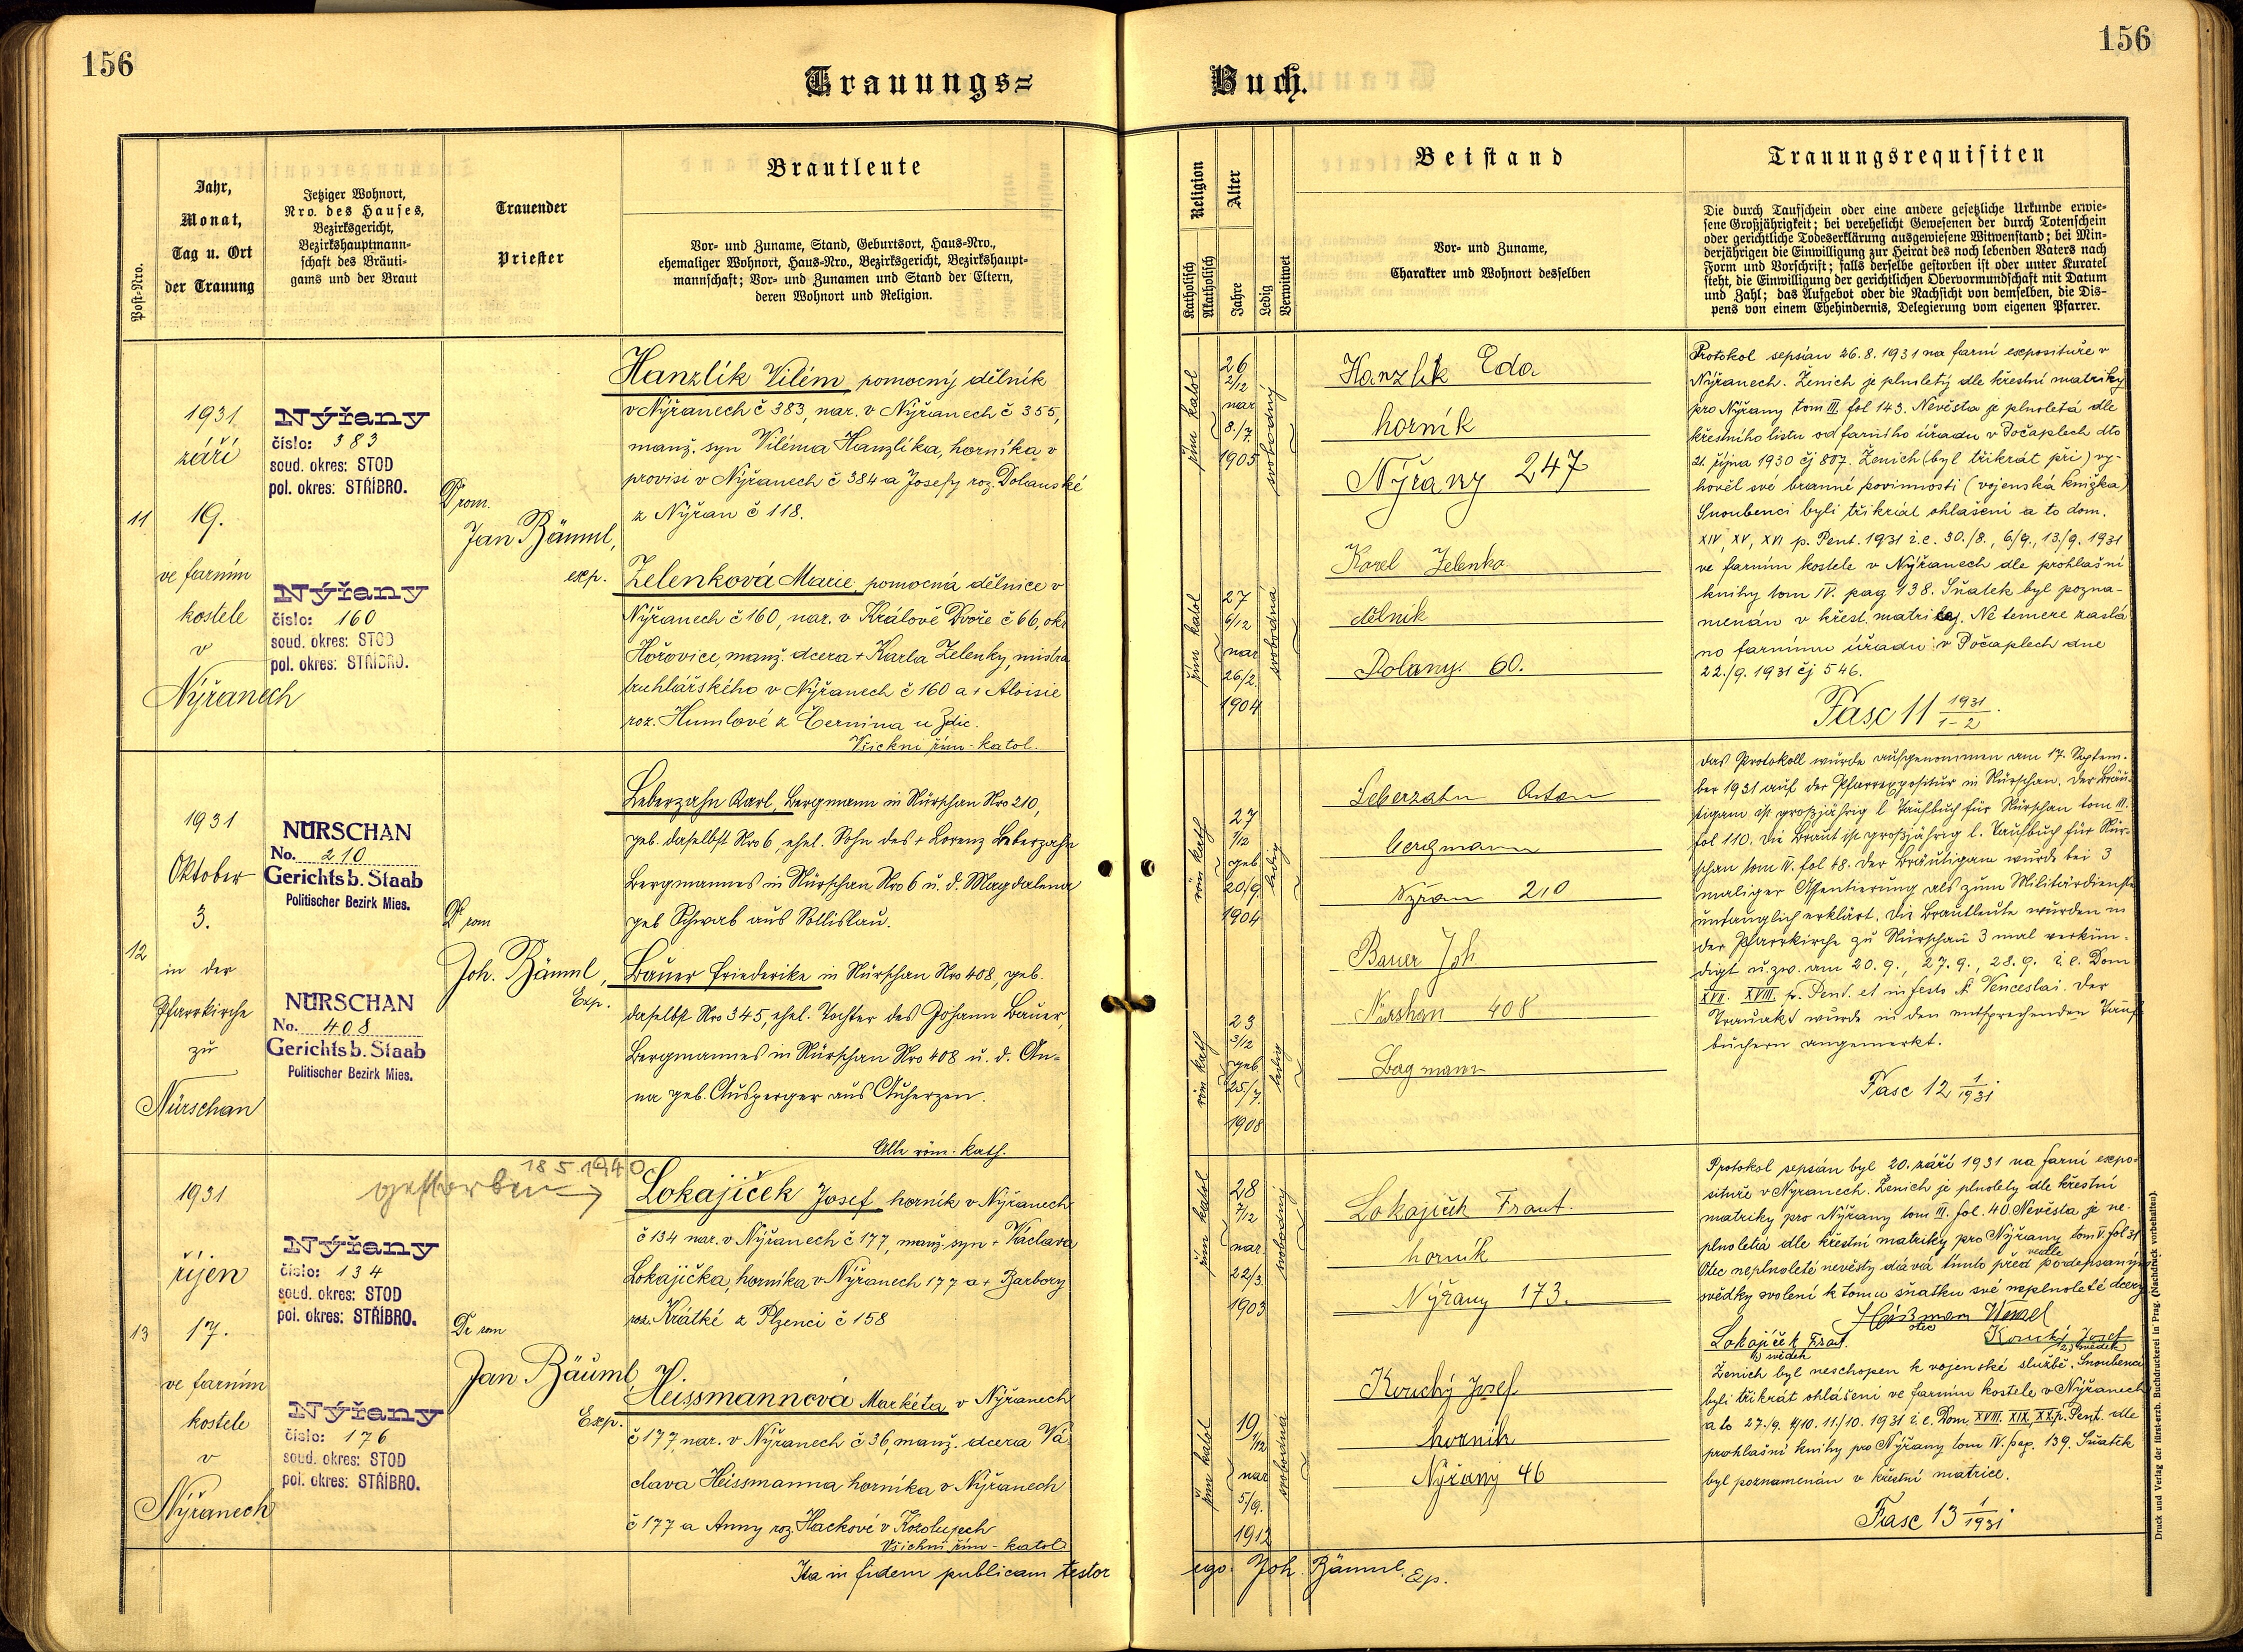 156
156
Trauungs=
Buch.
Post-Nro.
Jahr,
Monat,
Tag u. Ort
der Trauung
Jetziger Wohnort,
Nro. des Hauses,
Bezirksgericht,
Bezirkshauptmann-
schaft des Bräuti-
gams und der Braut
Trauender
Priester
Brautleute
Vor- und Zuname, Stand, Geburtsort, Haus-Nro.,
ehemaliger Wohnort, Haus-Nro., Bezirksgericht, Bezirkshaupt-
mannschaft; Vor- und Zunamen und Stand der Eltern,
deren Wohnort und Religion.
Religion
Katholisch
Akatholisch
Alter
Jahre
Ledig
Verwitwet
Beistand
Vor- und Zuname,
Charakter und Wohnort desselben
Trauungsrequisiten
Die durch Taufschein oder eine andere gesetzliche Urkunde erwie-
sene Großjährigkeit; bei verehelicht Gewesenen der durch Totenschein
oder gerichtliche Todeserklärung ausgewiesene Witwenstand; bei Min-
derjährigen die Einwilligung zur Heirat des noch lebenden Vaters nach
Form und Vorschrift; falls derselbe gestorben ist oder unter Kuratel
steht, die Einwilligung der gerichtlichen Obervormundschaft mit Datum
und Zahl; das Aufgebot oder die Nachsicht von demselben, die Dis-
pens von einem Ehehindernis, Delegierung vom eigenen Pfarrer.
11
1931
září
19.
ve farním
kostele
v
Nýřanech
Nýřany
číslo: 383
soud. okres: STOD
pol. okres: STŘÍBRO.
Nýřany
číslo: 160
soud. okres: STOD
pol. okres: STŘÍBRO.
Jan Bäuml,
exp.
Hanzlík Vilém, pomocný dělník
v Nýřanech č 383, nar. v Nýřanech č 355,
manž. syn Viléma Hanzlíka, horníka v
provisi v Nýřanech č 384 a Josefy roz. Dolanské
z Nýřan č 118.
Zelenková Marie, pomocná dělnice v
Nýřanech č 160, nar. v Králově Dvoře č 66, okr.
Hořovice, manž. dcera + Karla Zelenky, mistra
truhlářského v Nýřanech č 160 a + Aloisie
roz. Humlové z Černína u Zdic.
Všickni řím-katol.
řím katol
26
2/12
nar
8./7.
1905
svobodný
řím katol
27
6/12
nar
26/2.
1904
svobodná
Hanzlík Eda
horník
Nýřany 247
Karel Zelenka
dělník
Dolany. 60.
Protokol sepsán 26.8.1931 na farní exposituře v
Nýřanech. Ženich je plnoletý dle křestní matriky
pro Nýřany tom III. fol 143. Nevěsta je plnoletá dle
křestního listu od farního úřadu v Počaplech dto
21. října 1930 čj 807. Ženich (byl třikrát při) vy-
hověl své branné povinnosti (vojenská knížka)
Snoubenci byli třikrát ohlášeni a to dom.
XIV, XV, XVI p. Pent. 1931 i.e. 30./8., 6/9., 13./9. 1931
ve farním kostele v Nýřanech dle prohlašní
knihy tom IV. pag 138. Sňatek byl pozna-
menán v křest. matrikej. Ne temere zaslá
no farnímu úřadu v Počaplech dne
22./9. 1931 čj 546.
Fasc 11 1931/1-2.
12
1931
Oktober
3.
in der
Pfarrkirche
zu
Nürschan
NÜRSCHAN
No. 210
Gerichtsb. Staab
Politischer Bezirk Mies.
NÜRSCHAN
No. 408
Gerichtsb. Staab
Politischer Bezirk Mies.
Joh. Bäuml,
Exp.
Leberzahn Karl, Bergmann in Nürschan Nro 210,
geb. daselbst Nro 6, ehel. Sohn des + Lorenz Leberzahn
Bergmannes in Nürschan Nro 6 u. d. Magdalena
geb Schwab aus Sollislau.
Bauer Friederike in Nürschan Nro 408, geb.
daselbst Nro 345, ehel. Tochter des Johann Bauer,
Bergmannes in Nürschan Nro 408 u. d. An-
na geb. Ausperger aus Auherzen.
Alle röm. kath.
röm kath
27
1/12
geb
20/9.
1904
ledig
röm kath
23
3/12
geb
25/7.
1908
ledig
Leberzahn Anton
Bergmann
Nýřan 210
Bauer Joh.
Nürshan 408
Bagmann
Das Protokoll wurde aufgenommen am 17. Septem-
ber 1931 auf der Pfarrexpositur in Nürschan. Der Bräu-
tigam ist großjährig l. Taufbuch für Nürschan tom III.
fol 110. Die Braut ist großjährig l. Taufbuch für Nür-
schan tom IV. fol 48. Der Bräutigam wurde bei 3
maliger Assentierung als zum Militärdienste
untauglich erklärt. Die Brautleute wurden in
der Pfarrkirche zu Nürschan 3 mal verkün-
digt u. zw. am 20.9., 27.9., 28.9. i.e. Dom
XVII. XVIII. p. Pent. et in festo St. Venceslai. Der
Trauakt wurde in den entsprechenden Tauf-
büchern angemerkt.
Fasc 12 1/1931
13
1931
říjen
17.
ve farním
kostele
v
Nýřanech
gestorben 18 5.1940
Nýřany
číslo: 134
soud. okres: STOD
pol. okres: STŘÍBRO.
Nýřany
číslo: 176
soud. okres: STOD
pol. okres: STŘÍBRO.
Jan Bäuml
Exp.
Lokajíček Josef, horník v Nýřanech
č 134 nar. v Nýřanech č 177, manž. syn + Václava
Lokajíčka, horníka v Nýřanech 177 a + Barbory
roz. Krátké z Plzenci č 158
Heissmannová Markéta v Nýřanech
č 177, nar. v Nýřanech č 36, manž. dcera Vá
clava Heissmanna horníka v Nýřanech
č 177 a Anny roz. Hackové v Kozolupech
Všichni řím-katol
řím katol
28
7/12
nar.
22/3.
1903
svobodný
řím katol
19
1/12
nar
5/9.
1912
svobodná
Lokajíček Frant.
horník
Nýřany 173.
Kouchý Josef
horník
Nýřany 46
Protokol sepsán byl 20. září 1931 na farní expo-
situře v Nýřanech. Ženich je plnoletý dle křestní
matriky pro Nýřany tom III. fol. 40. Nevěsta je ne-
plnoletá dle křestní matriky pro Nýřany tom V. fol 31
Otec neplnoleté nevěsty dává tímto před vedle podepsanými
svědky svolení k tomu sňatku své neplnoleté dcery
otec
Lokajíček Frant.
1) svědek
Kouchý Josef
2) svědek
Ženich byl neschopen k vojenské službě. Snoubenci
byli třikrát ohlášeni ve farním kostele v Nýřanech
a to 27./9. 4/10. 11./10. 1931 i.e. Dom. XVIII. XIX. XX. p. Pent. dle
prohlašní knihy pro Nýřany tom IV. pag. 139. Sňatek
byl poznamenán v křestní matrice.
Fasc 13 1/1931
Ita in fidem publicam testor
ego Joh. Bäuml, Exp.
Druck und Verlag der fürst-erzb. Buchdruckerei in Prag. (Nachdruck vorbehalten).